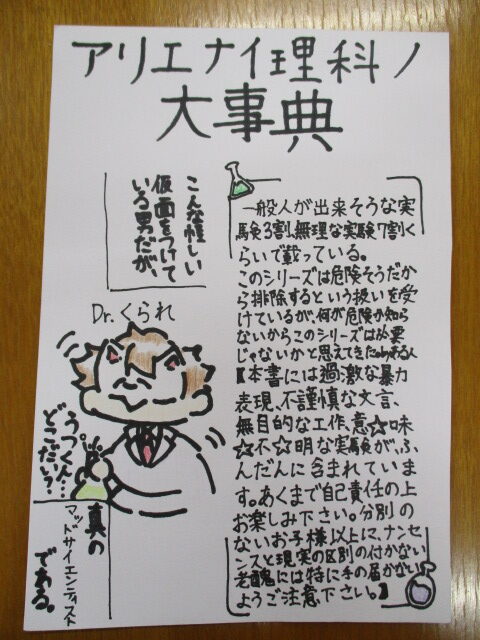 アリエナイ理科ノ
大事典
こんな怪しい
仮面をつけて
いる男だが、
Dr.くられ
うっくん!
どこだい?
真の
マッドサイエンティスト
である。
一般人が出来そうな実
験3割、無理な実験7割く
らいで載っている。
このシリーズは危険そうだか
ら排除するという扱いを受
けているが、何が危険か知ら
ないからこのシリーズは必要
じゃないかと思えてきた
【本書には過激な暴力
表現、不謹慎な文言、
無目的な工作、意☆味
☆不☆明な実験が、ふ
んだんに含まれていま
す。あくまで自己責任の上
お楽しみ下さい。分別の
ないお子様以上に、ナンセ
ンスと現実の区別の付かない
老醜には特に手の届かない
ようご注意下さい。】